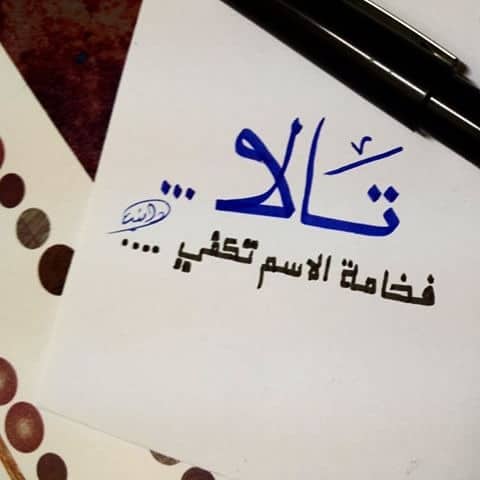 تالا ...
فخامة الاسم تكفي ....